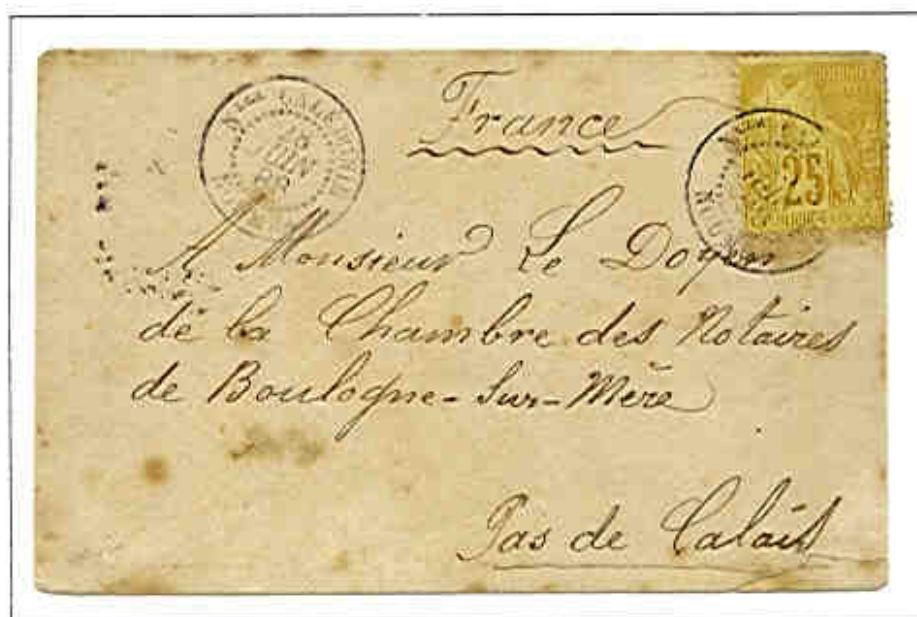 France
A Monsieur Le Doyen
de la Chambre des Notaires
de Boulogne-Sur-Mère
Pas de Calais
JUIN
25